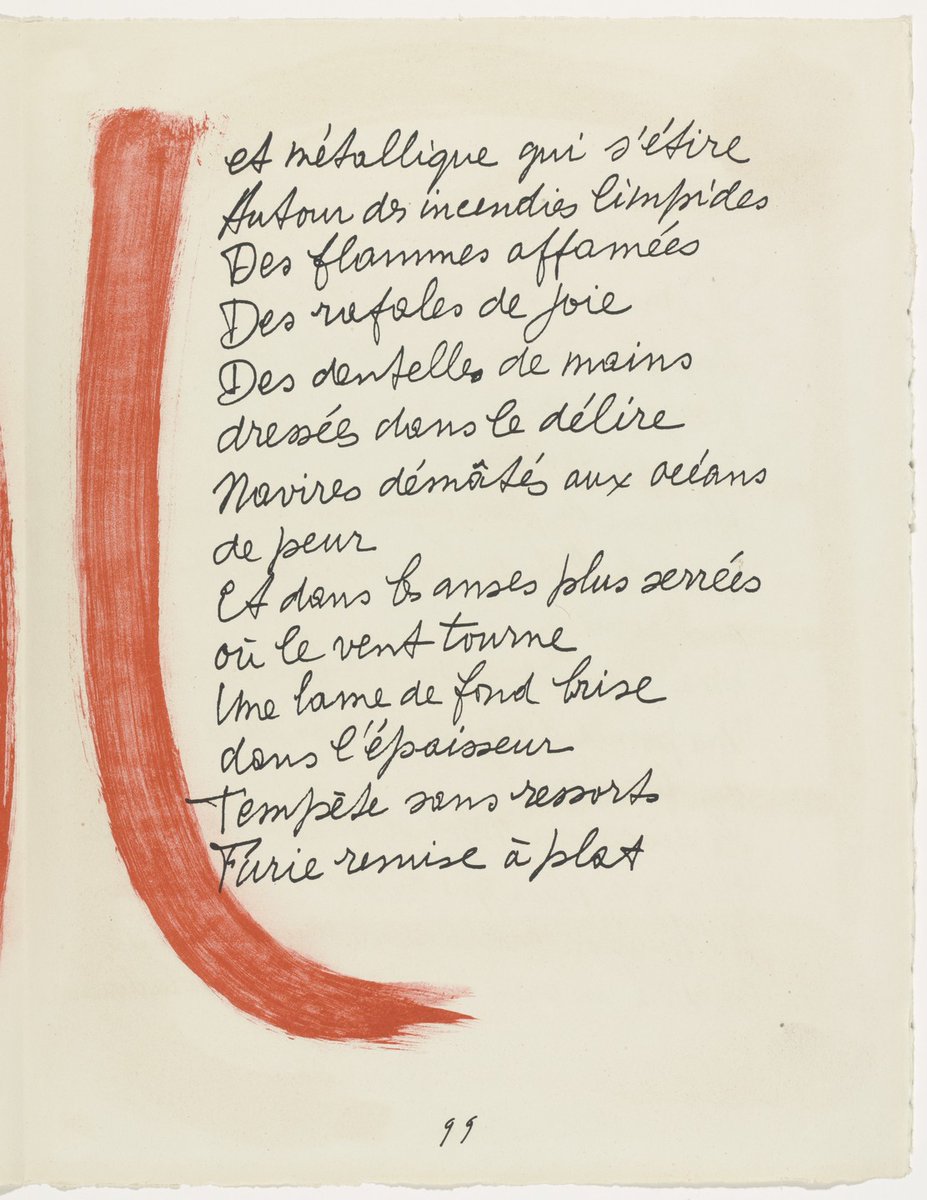 et métallique qui s'étire
Autour des incendies limpides
Des flammes affamées
Des rafales de joie
Des dentelles de mains
dressées dans le délire
Navires démâtés aux océans
de peur
Et dans les anses plus serrées
où le vent tourne
Une lame de fond brise
dans l'épaisseur
Tempête sans ressorts
Furie remise à plat
99